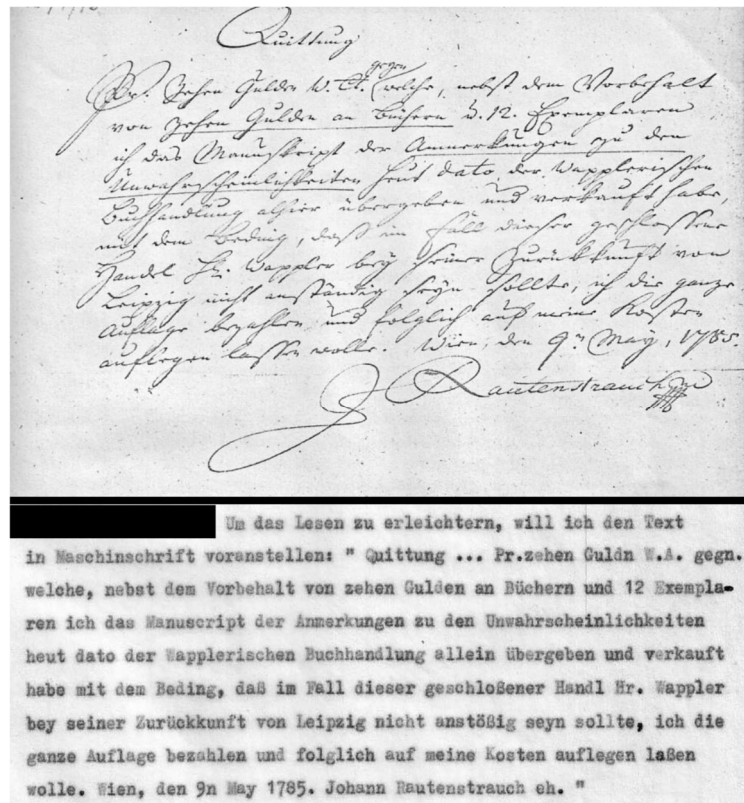 Quittung
Pr. Zehen Gulden W. Ct. gegen welche, nebst dem Vorbehalt
von zehen Gulden an büchern u. 12. Exemplaren
ich das Manuskript der Anmerkungen zu den
Unwahrscheinlichkeiten heut dato der Wapplerischen
Buchhandlung alhier übergeben und verkauft habe,
mit dem Beding, daß im Fall dieser geschlossene
Handel Hr. Wappler bey seiner Zurükkunft von
Leipzig nicht anständig seyn sollte, ich die ganze
Auflage bezahlen und folglich auf meine Kosten
auflegen lassen wolle. Wien, den 9n May, 1785.
J Rautenstrauch
Um das Lesen zu erleichtern, will ich den Text
in Maschinschrift voranstellen: " Quittung ... Pr.zehen Guldn W.A. gegn.
welche, nebst dem Vorbehalt von zehen Gulden an Büchern und 12 Exempla-
ren ich das Manuscript der Anmerkungen zu den Unwahrscheinlichkeiten
heut dato der Wapplerischen Buchhandlung allein übergeben und verkauft
habe mit dem Beding, daß im Fall dieser geschloßener Handl Hr. Wappler
bey seiner Zurückkunft von Leipzig nicht anstößig seyn sollte, ich die
ganze Auflage bezahlen und folglich auf meine Kosten auflegen laßen
wolle. Wien, den 9n May 1785. Johann Rautenstrauch eh. "